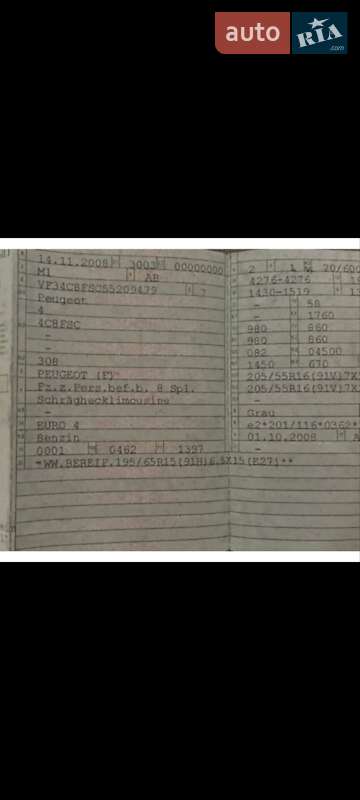 auto RIA .com
14.11.2008 3003 00000000
M1 AB
VF34C8FSC55209479 7
Peugeot
4
4C8FSC
-
-
308
PEUGEOT (F)
Fz.z.Pers.bef.b. 8 Spl.
Schräghecklimousine
-
EURO 4
Benzin
0001 0462 1397
*WW.BEREIF.195/65R15(91H)6,5X15(E27)**
2 1 20/600
4276-4276
1430-1519
- 58
- 1760
980 860
980 860
082 04500
1450 670
205/55R16(91V)7X
205/55R16(91V)7X
-
Grau
e2*201/116*0362*
01.10.2008 A
-